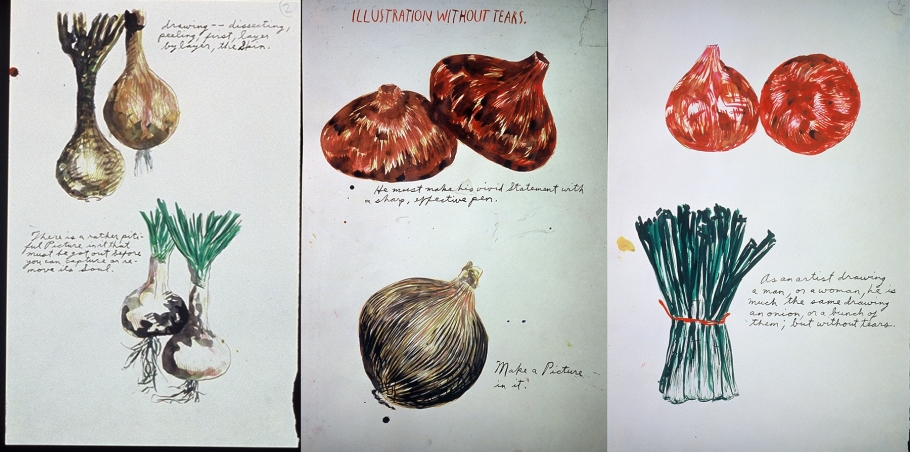 drawing -- dissecting,
peeling, first, layer
by layer, the Skin.
There is a rather piti-
ful Picture in it that
must be got out before
you can capture or re-
move its Soul.
ILLUSTRATION WITHOUT TEARS.
He must make his vivid Statement with
a sharp, effective pen.
Make a Picture
in it.
As an artist drawing
a man, or a woman, he is
much the same drawing
an onion, or a bunch of
them; but without tears.